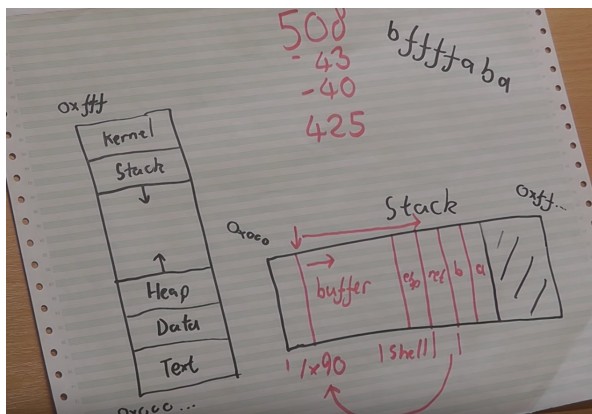 508
-43
-40
425
bffffaba
0xfff
Kernel
Stack
Heap
Data
Text
0x000...
Stack
0x000
0xff...
buffer
ebp
ret
b
a
\x90
shell